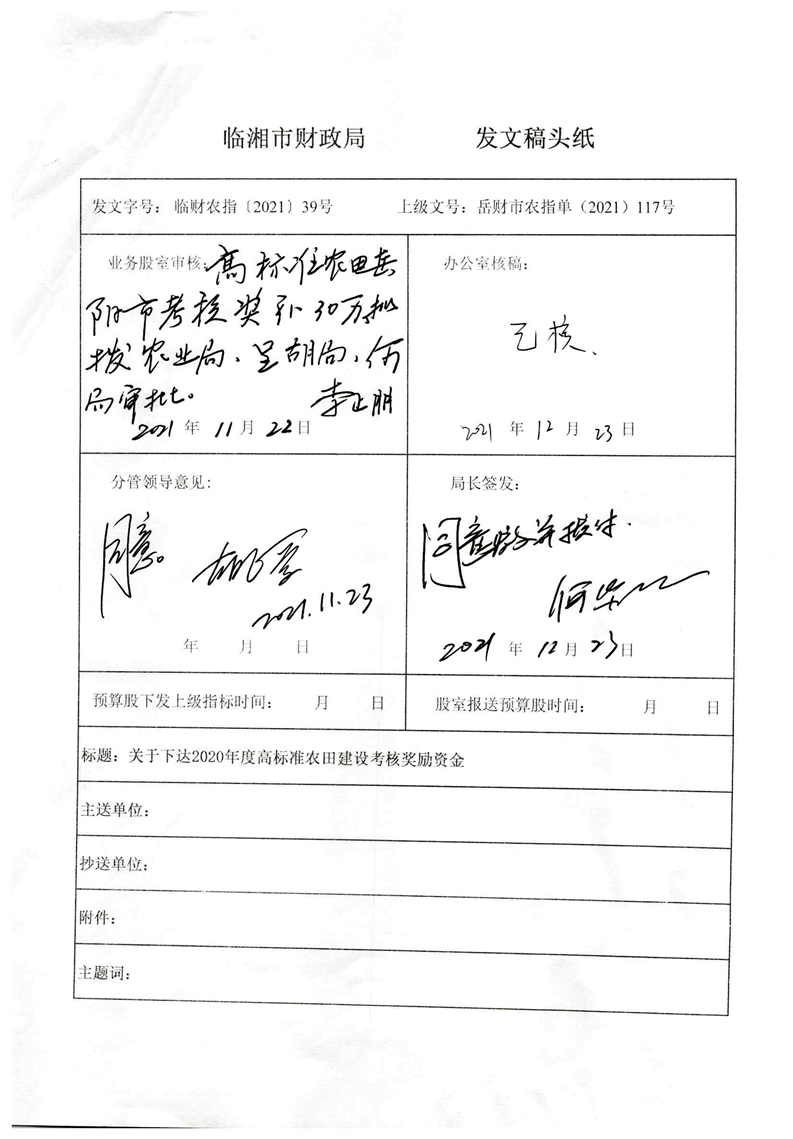 临湘市财政局 发文稿头纸
发文字号： 临财农指〔2021〕39号 上级文号：岳财市农指单（2021）117号
业务股室审核：高标准农田岳
阳市考核奖引30万拟
拨农业局、呈胡局、何
局审批。 李正朋
2021年11月22日
办公室核稿：
已核、
2021年12月23日
分管领导意见：
同意。
2021.11.23
年 月 日
局长签发：
同意
2021年12月23日
预算股下发上级指标时间： 月 日
股室报送预算股时间： 月 日
标题：关于下达2020年度高标准农田建设考核奖励资金
主送单位：
抄送单位：
附件：
主题词：